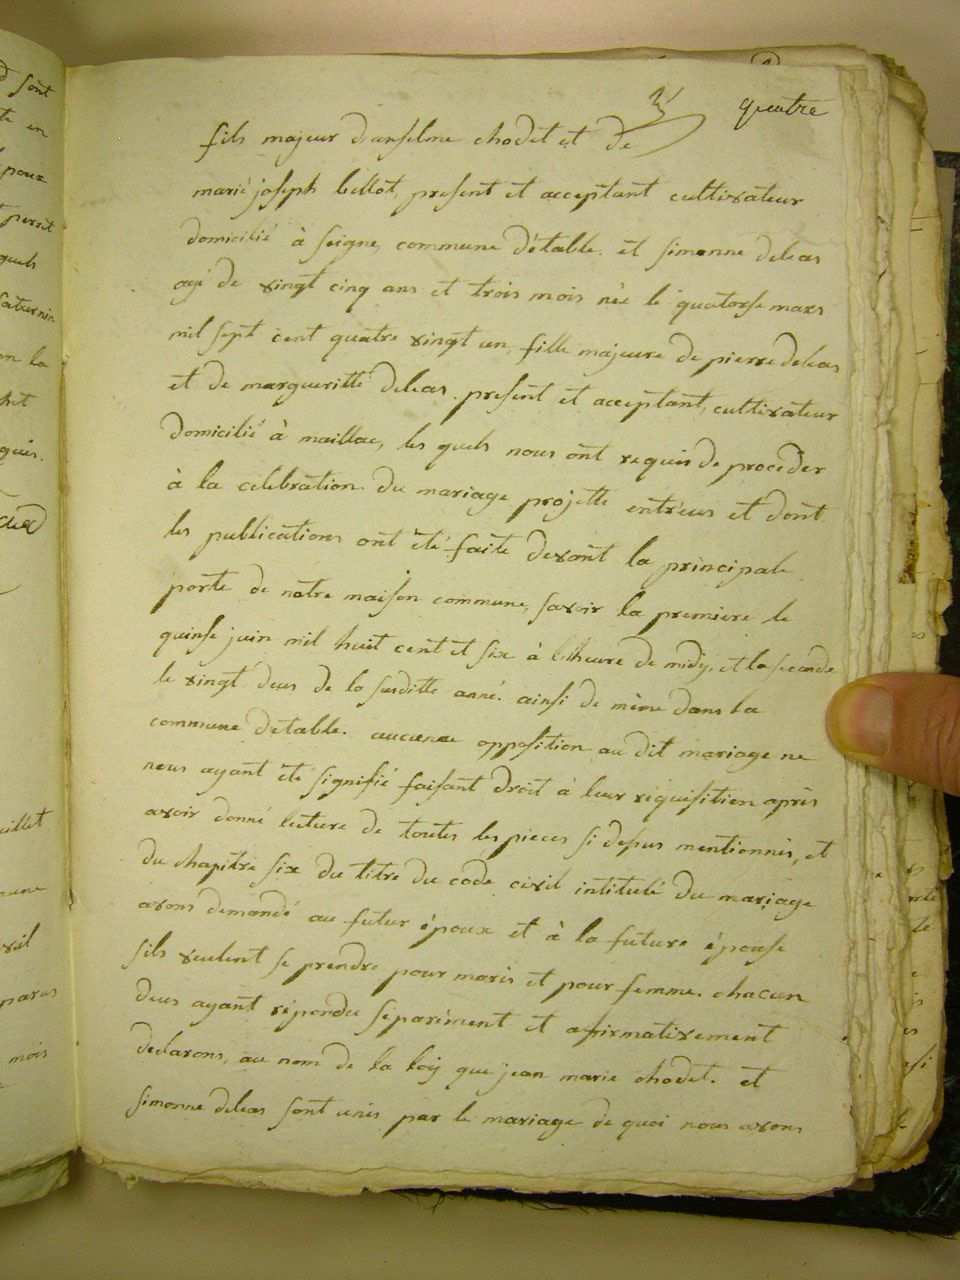 quatre
fils majeur d'anselme chodet et de
marie joseph bellot, present et acceptant cultivateur
domicilié à seigne, commune d'étable. et simonne deleas
agé de vingt cinq ans et trois mois née le quatorse mars
mil sept cent quatre vingt un, fille majeure de pierre deleas
et de margueritte deleas. present et acceptant, cultivateur
domicilié à maillac, les quels nous ont requis de proceder
à la celebration du mariage projetté entr'eus et dont
les publications ont été faite devant la principale
porte de notre maison commune, savoir la premiere le
quinse juin mil huit cent et six à l'heure de midy, et la seconde
le vingt deus de la susditte anné. ainsi de même dans la
commune d'etable. aucune opposition au dit mariage ne
nous ayant été signifié faisant droit à leur réquisition après
avoir donné lecture de toutes les pieces si desus mentionnés, et
du chapitre six du titre du code civil intitulé du mariage
avons demandé au futur époux et à la future épouse
sils veulent se prendre pour maris et pour femme. chacun
deus ayant répondu séparément et afirmativement
declarons, au nom de la loy que jean marie chodet. et
simonne deleas sont unis par le mariage de quoi nous avons